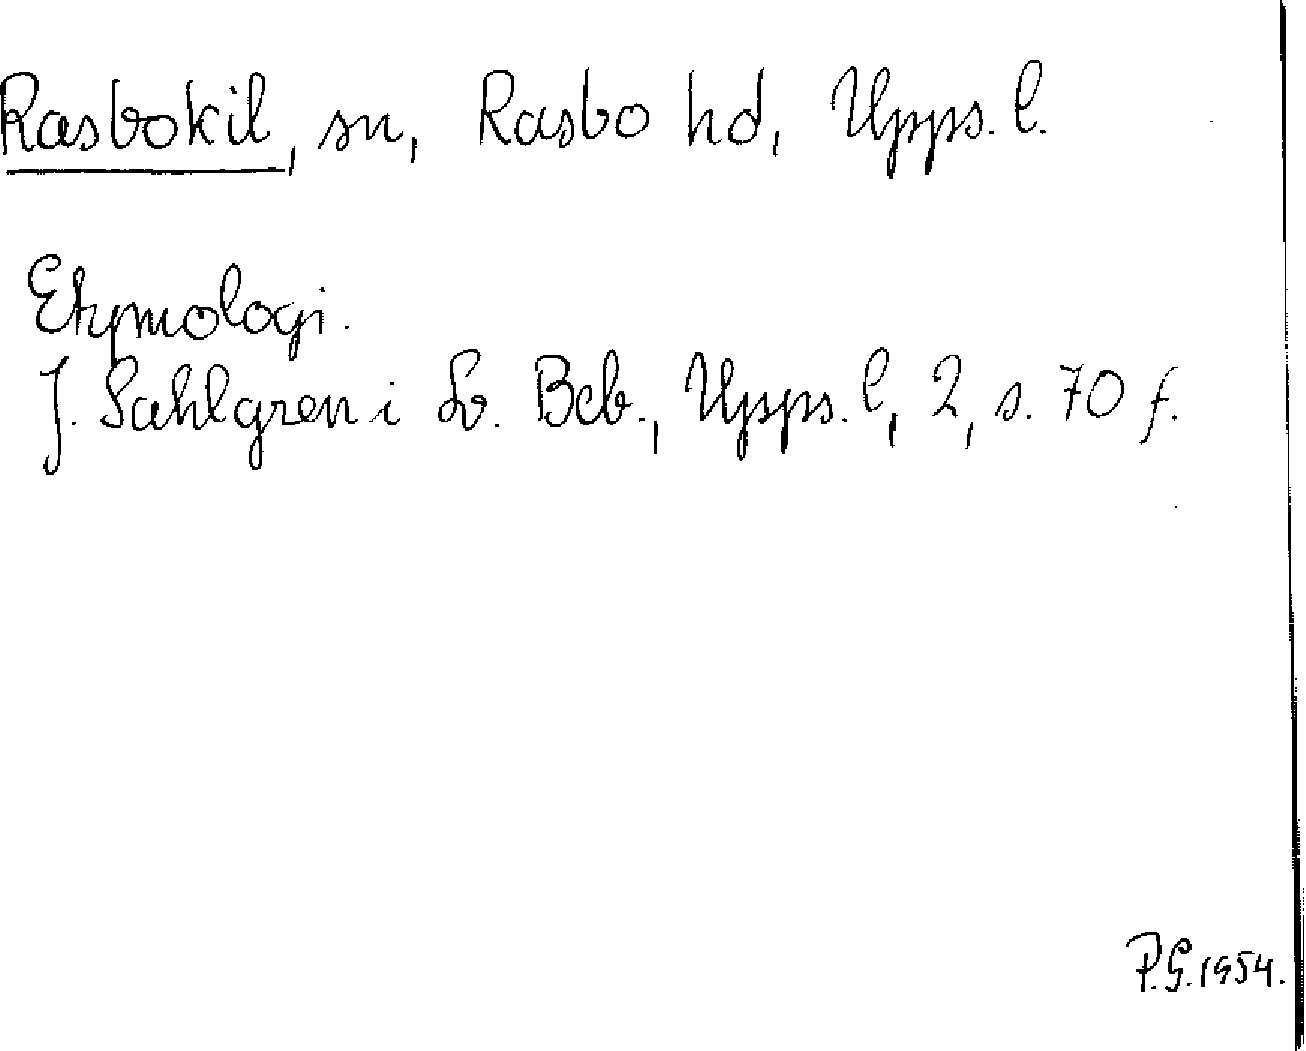 Rasbokil, sn, Rasbo hd, Upps. l.
Etymologi.
J. Sahlgren i Sv. Beb., Upps. l, 2, s. 70 f.
P.G. 1954.